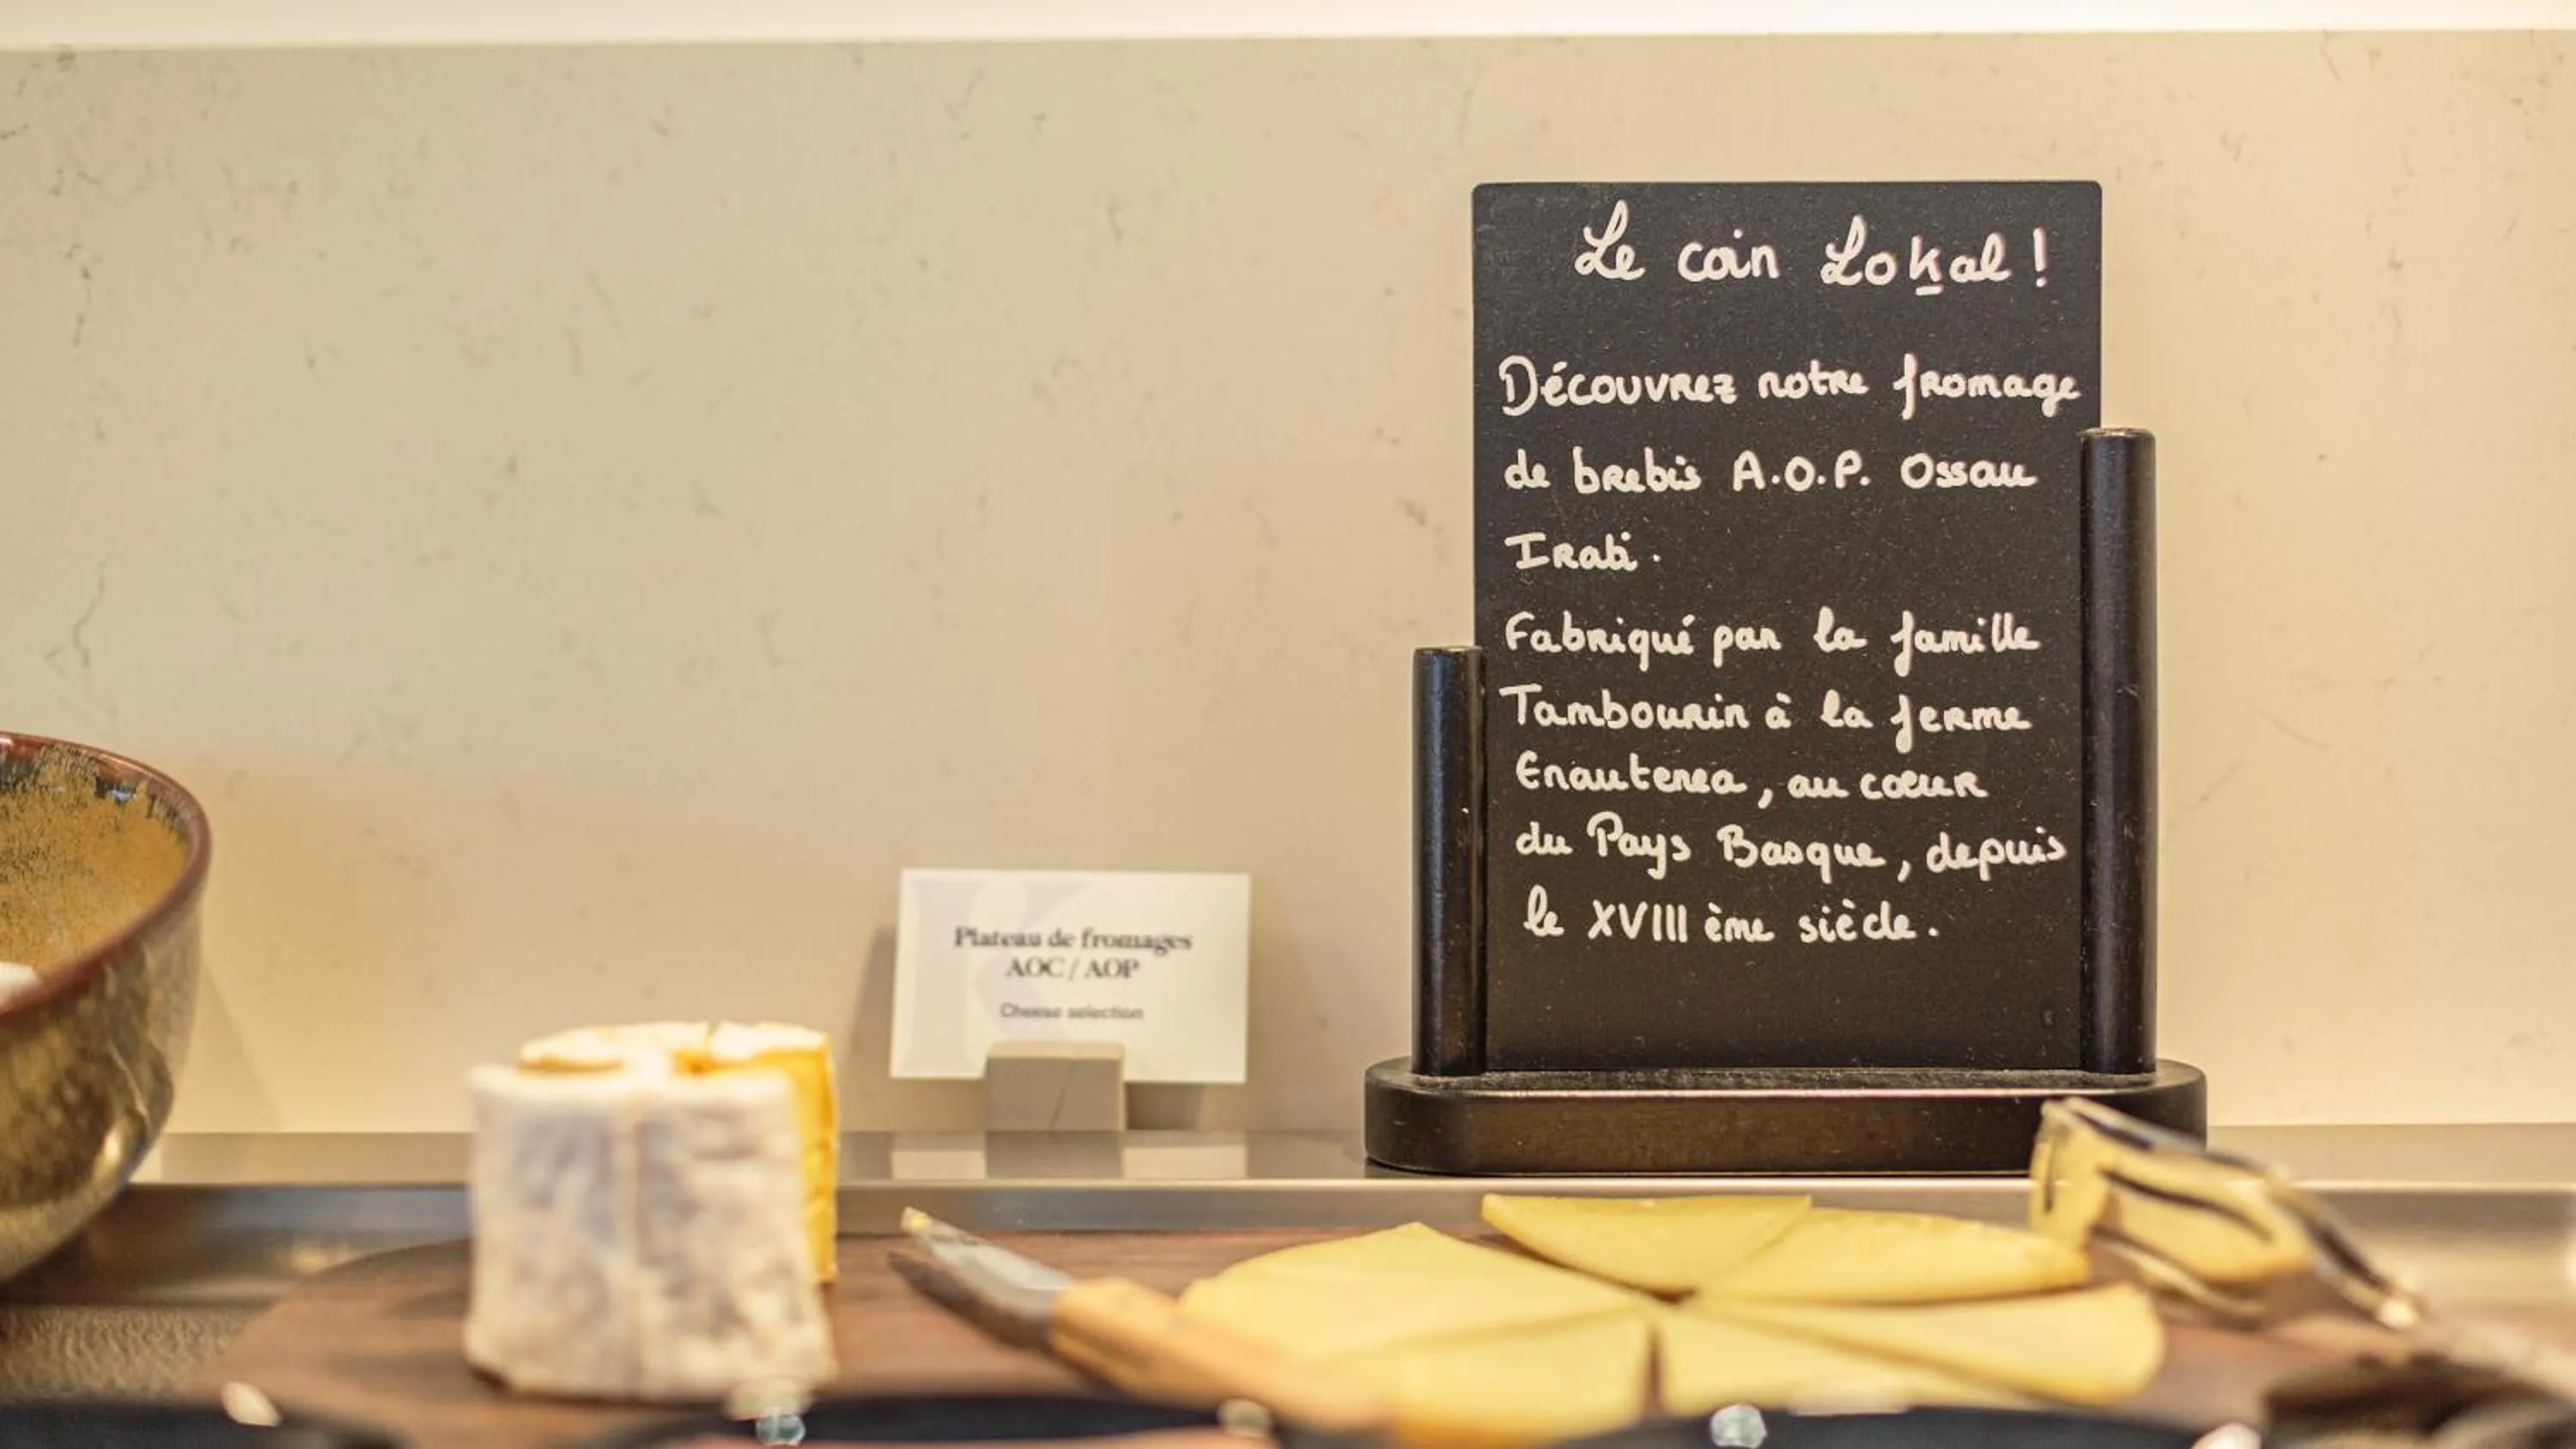 Le coin Lokal !
Découvrez notre fromage
de brebis A.O.P. Ossau
Irati.
Fabriqué par la famille
Tambourin à la ferme
Enautenea, au coeur
du Pays Basque, depuis
le XVIII ème siècle.
Plateau de fromages
AOC / AOP
Cheese selection